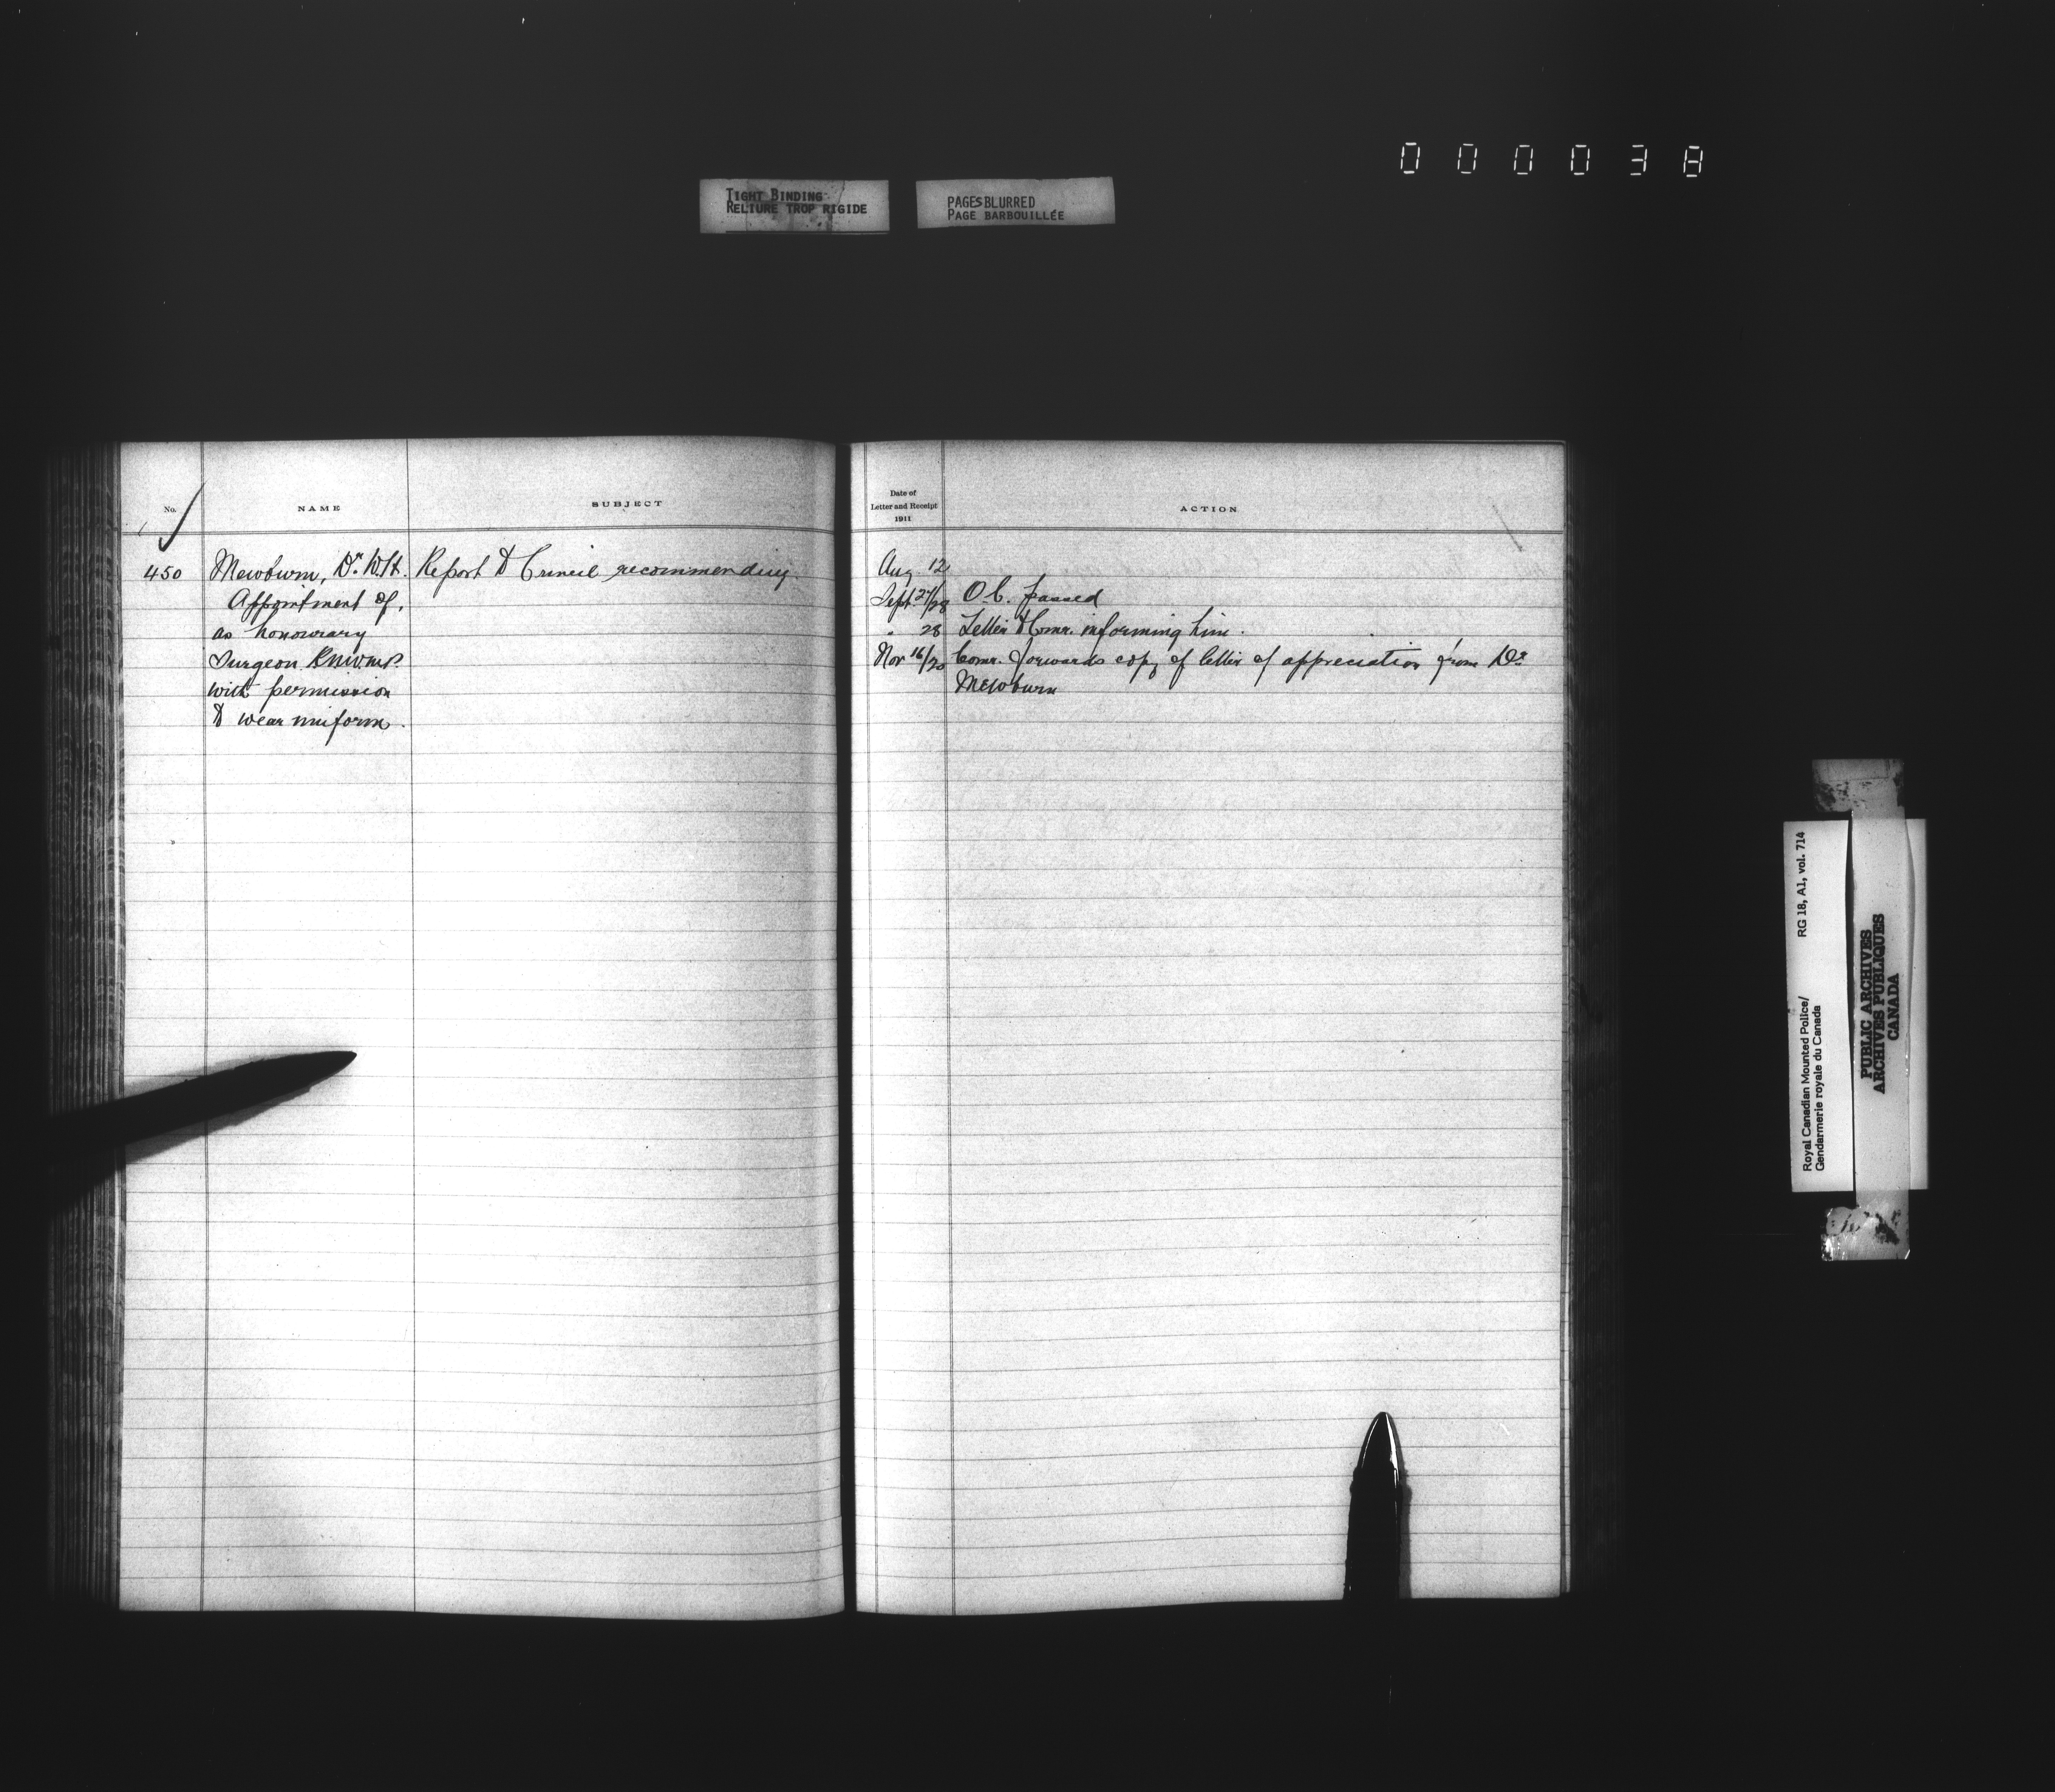 000038
TIGHT BINDING
RELIURE TROP RIGIDE
PAGES BLURRED
PAGE BARBOUILLÉE
No.
NAME
SUBJECT
450
Mewburn, Dr. W.H.
Appointment of,
as honourary
Surgeon RNWMP.
with permission
to wear uniform.
Report to Council recommending.
Date of
Letter and Receipt
1911
ACTION
Aug. 12
Sept. 27/28 O.C. passed
" 28 Letter to Comr. informing him.
Nov 16/20 Comr. forwards copy of letter of appreciation from Dr.
Mewburn
Royal Canadian Mounted Police/ RG 18, A1, vol. 714
Gendarmerie royale du Canada
PUBLIC ARCHIVES
ARCHIVES PUBLIQUES
CANADA